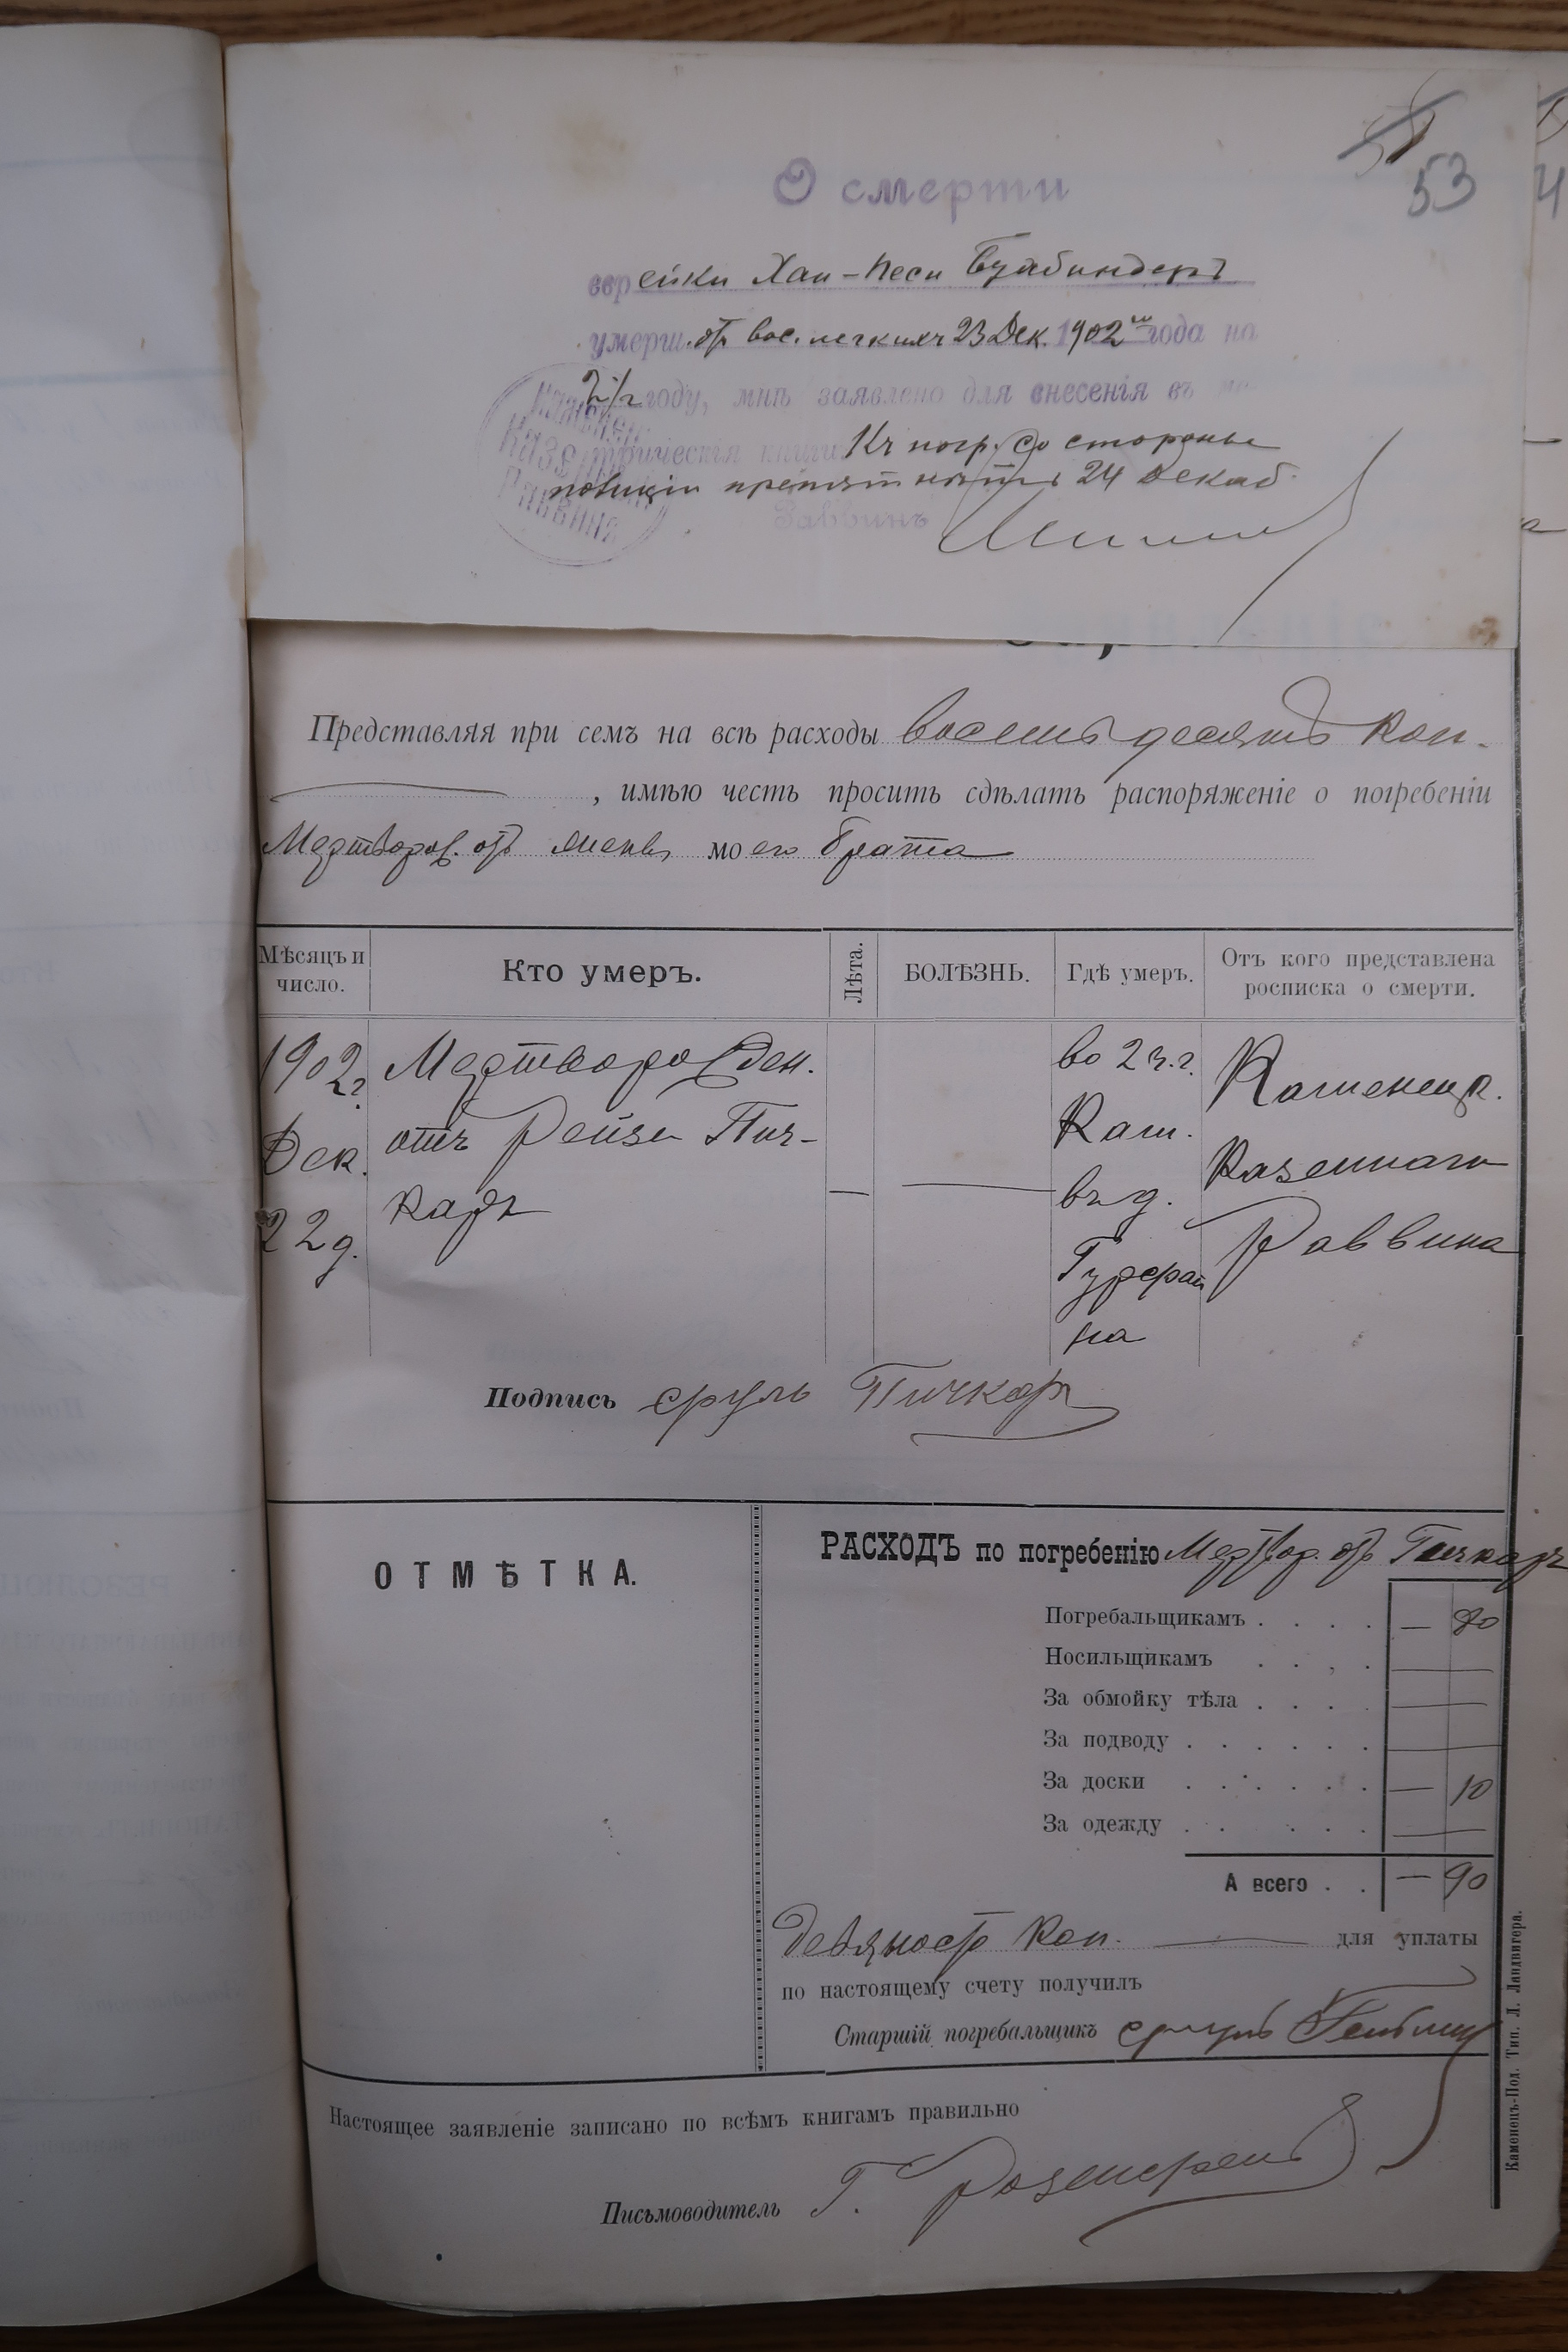 53
О смерти
еврейки Хаи-Песи
умерш. отъ вос. легкихъ 23 Дек. 1902 года на
году, мнѣ заявлено для внесенія въ
трическія книги Къ погр. со стороны
полиціи препят нѣтъ 24 Декаб.
Раввинъ
Каменец
Казен
Раввина
Представляя при семъ на всѣ расходы восемьдесятъ коп.
, имѣю честь просить сдѣлать распоряженіе о погребеніи
Мертворо. отъ жены моего брата
Мѣсяцъ и число.
Кто умеръ.
Лѣта.
БОЛѢЗНЬ.
Гдѣ умеръ.
Отъ кого представлена росписка о смерти.
1902 г.
Дек.
22 д.
Мертворожден.
отъ Рейзи Пич-
каръ
—
—
во 2 ч. г.
Кам.
въ д.
на
Каменецк.
Казеннаго
Раввина
Подпись Сруль Пичкаръ
ОТМѢТКА.
РАСХОДЪ по погребенію Мертвор. отъ Пичкаръ
Погребальщикамъ . . . . — 80
Носильщикамъ . . . . —
За обмойку тѣла . . . . —
За подводу . . . . . . —
За доски . . . . . . — 10
За одежду . . . . . . —
А всего . . — 90
девяносто коп. — для уплаты
по настоящему счету получилъ
Старшій погребальщикъ
Настоящее заявленіе записано по всѣмъ книгамъ правильно
Письмоводитель Г.
Каменецъ-Под. Тип. Л. Ландвигера.